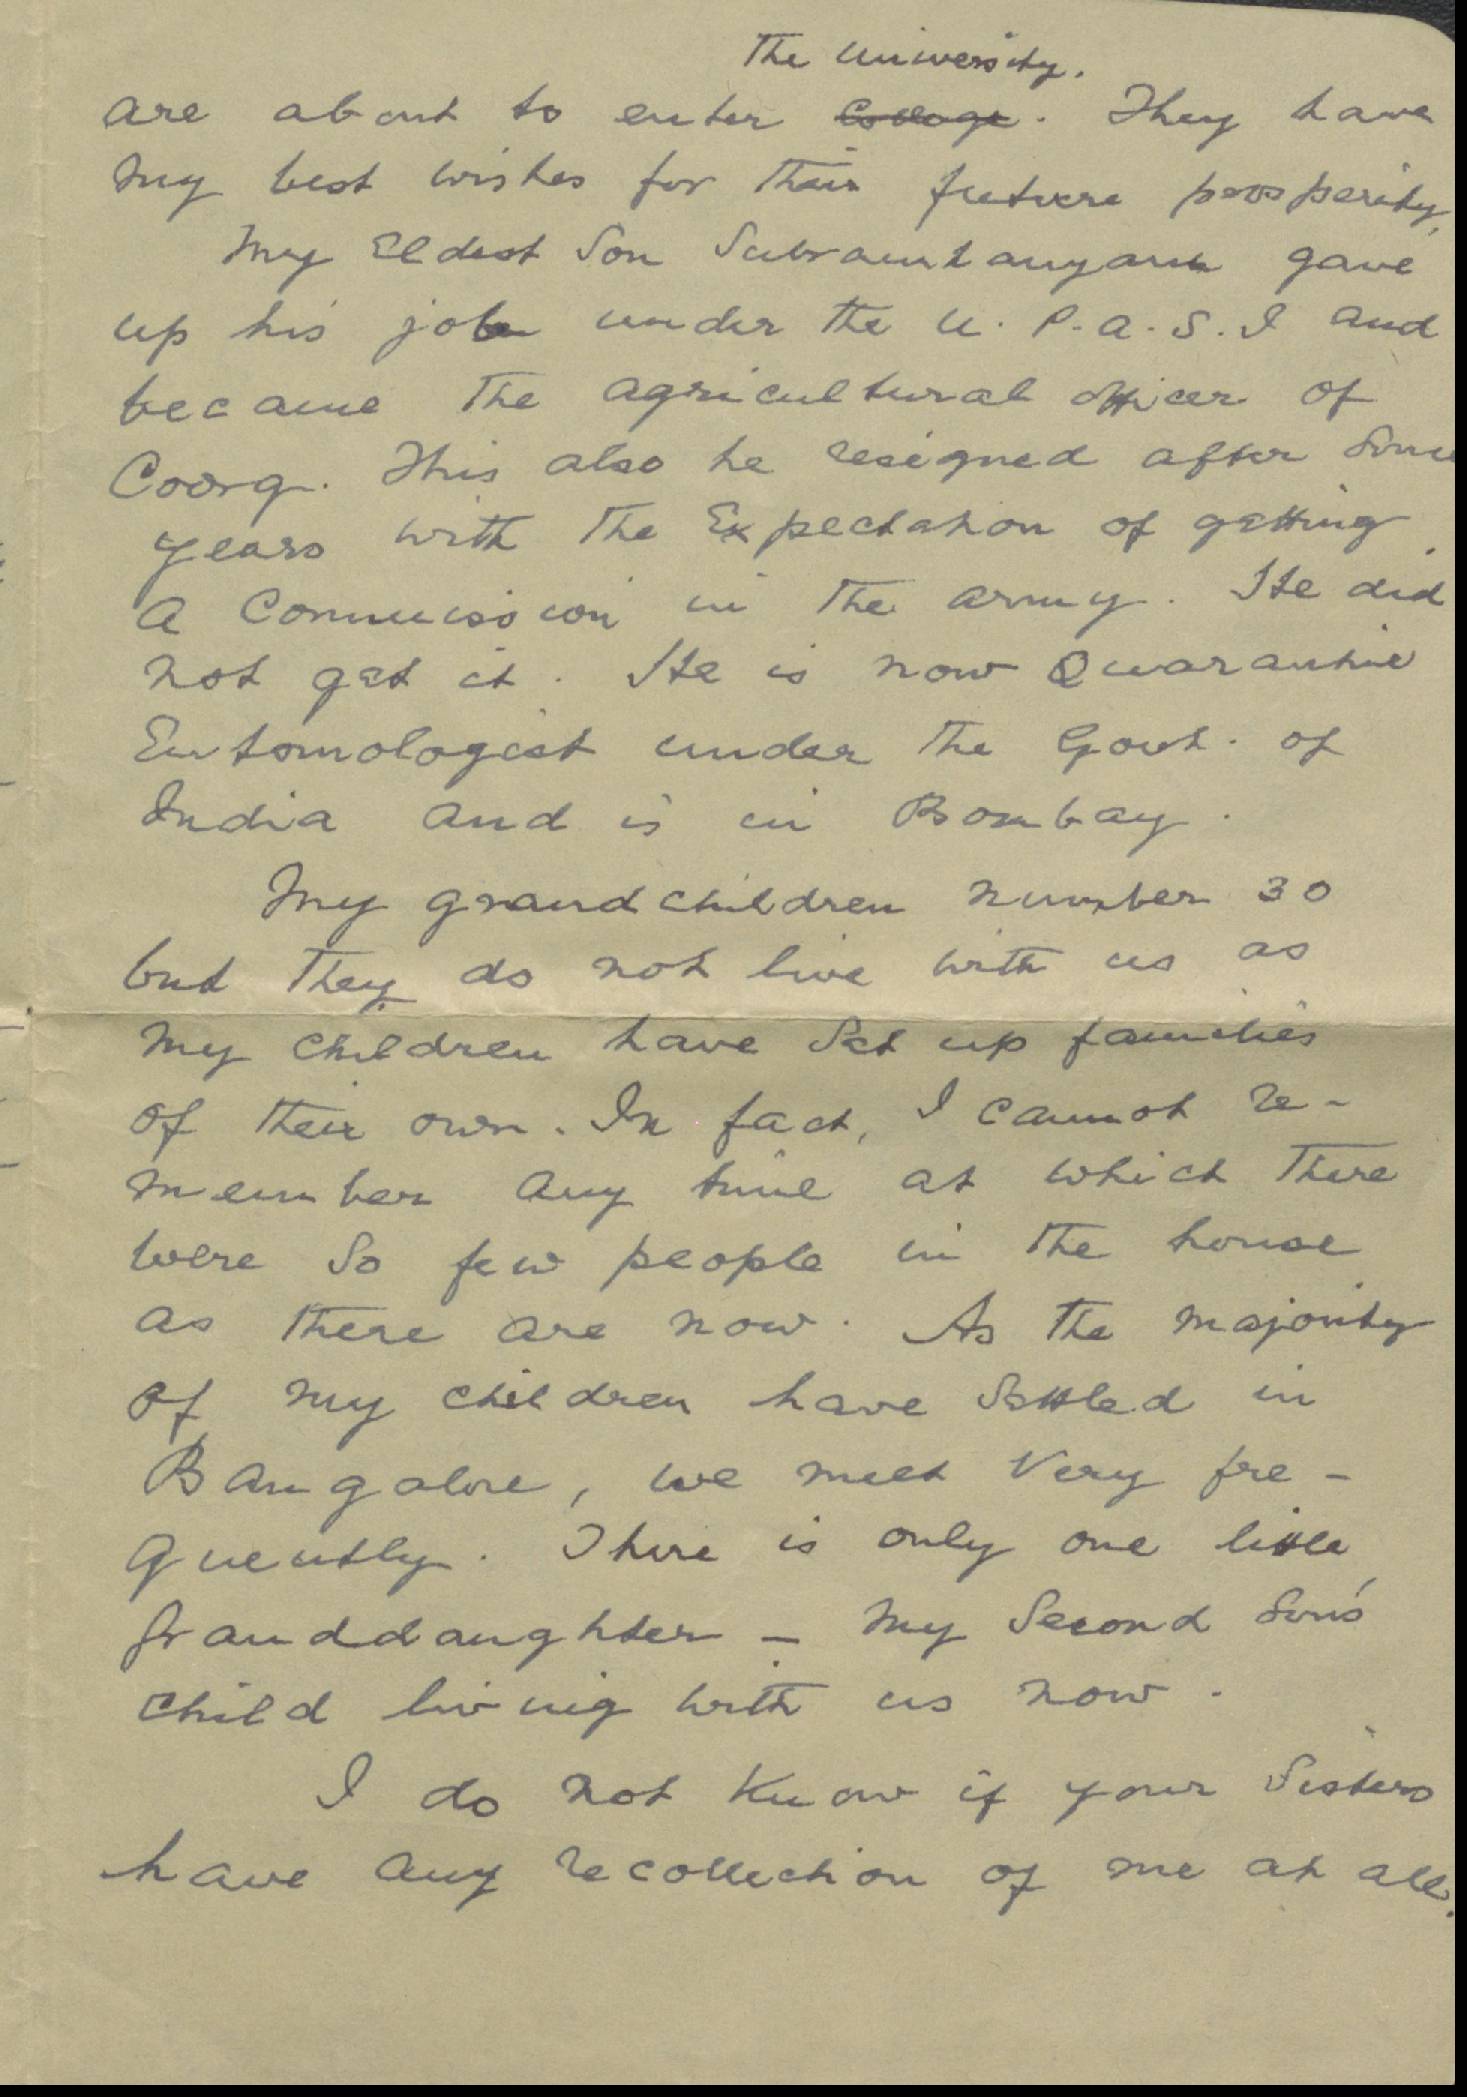 The University.
are about to enter College. They have
my best wishes for their future prosperity.
My Eldest Son Subramhanyam gave
up his job under the U. P. A. S. I and
became the agricultural officer of
Coorg. This also he resigned after some
years with the Expectation of getting
a Commission in the army. He did
not get it. He is now Quarantine
Entomologist under the Govt. of
India and is in Bombay.
My grandchildren number 30
but they do not live with us as
my children have set up families
of their own. In fact, I cannot re-
member any time at which there
were so few people in the house
as there are now. As the majority
of my children have settled in
Bangalore, we meet very fre-
quently. There is only one little
granddaughter - my second son's
child living with us now.
I do not know if your sisters
have any recollection of me at all.